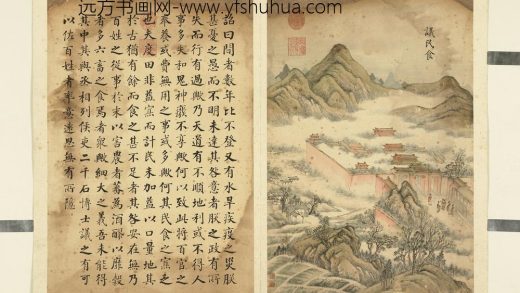 远方书画网 www.yfshuhua.com
議民食
詔曰間者數年比不登又有水旱疾疫之災朕
甚憂之愚而不明未達其咎意者朕之政有所
失而行有過歟乃天道有不順地利或不得人
事多失和鬼神廢不享歟何以致此將百官之
奉養或費無用之事或多歟何其民食之寡乏
也夫度田非益寡而計民未加益以口量地其
於古猶有餘而食之甚不足者其咎安在無乃
百姓之從事於末以害農者蕃為酒醪以靡穀
者多六畜之食焉者眾歟細大之義吾未能得
其中其與丞相列侯吏二千石博士議之有可
以佐百姓者率意遠思無有所隱